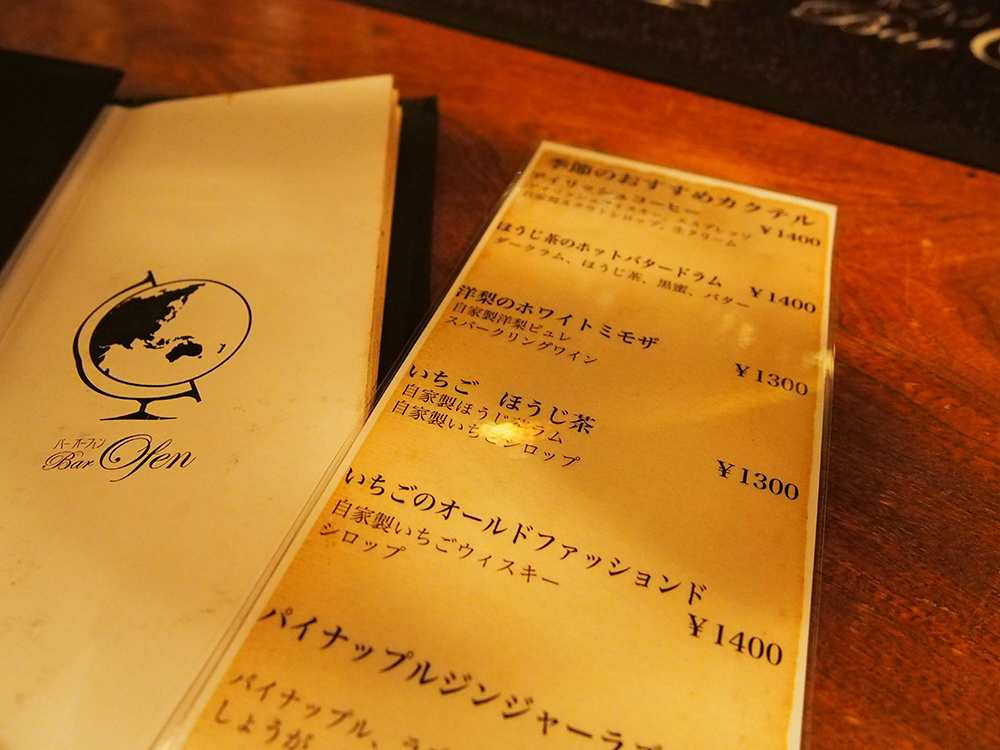 バー オーフェン
Bar Ofen
季節のおすすめカクテル
アイリッシュコーヒー ¥1400
シロップ、生クリーム
ほうじ茶のホットバタードラム ¥1400
ダークラム、ほうじ茶、黒蜜、バター
洋梨のホワイトミモザ ¥1300
自家製洋梨ピュレ
スパークリングワイン
いちご ほうじ茶 ¥1300
自家製ほうじ茶ラム
自家製いちごシロップ
いちごのオールドファッションド ¥1400
自家製いちごウィスキー
シロップ
パイナップルジンジャーラ
パイナップル、ラ
しょうが
Bar